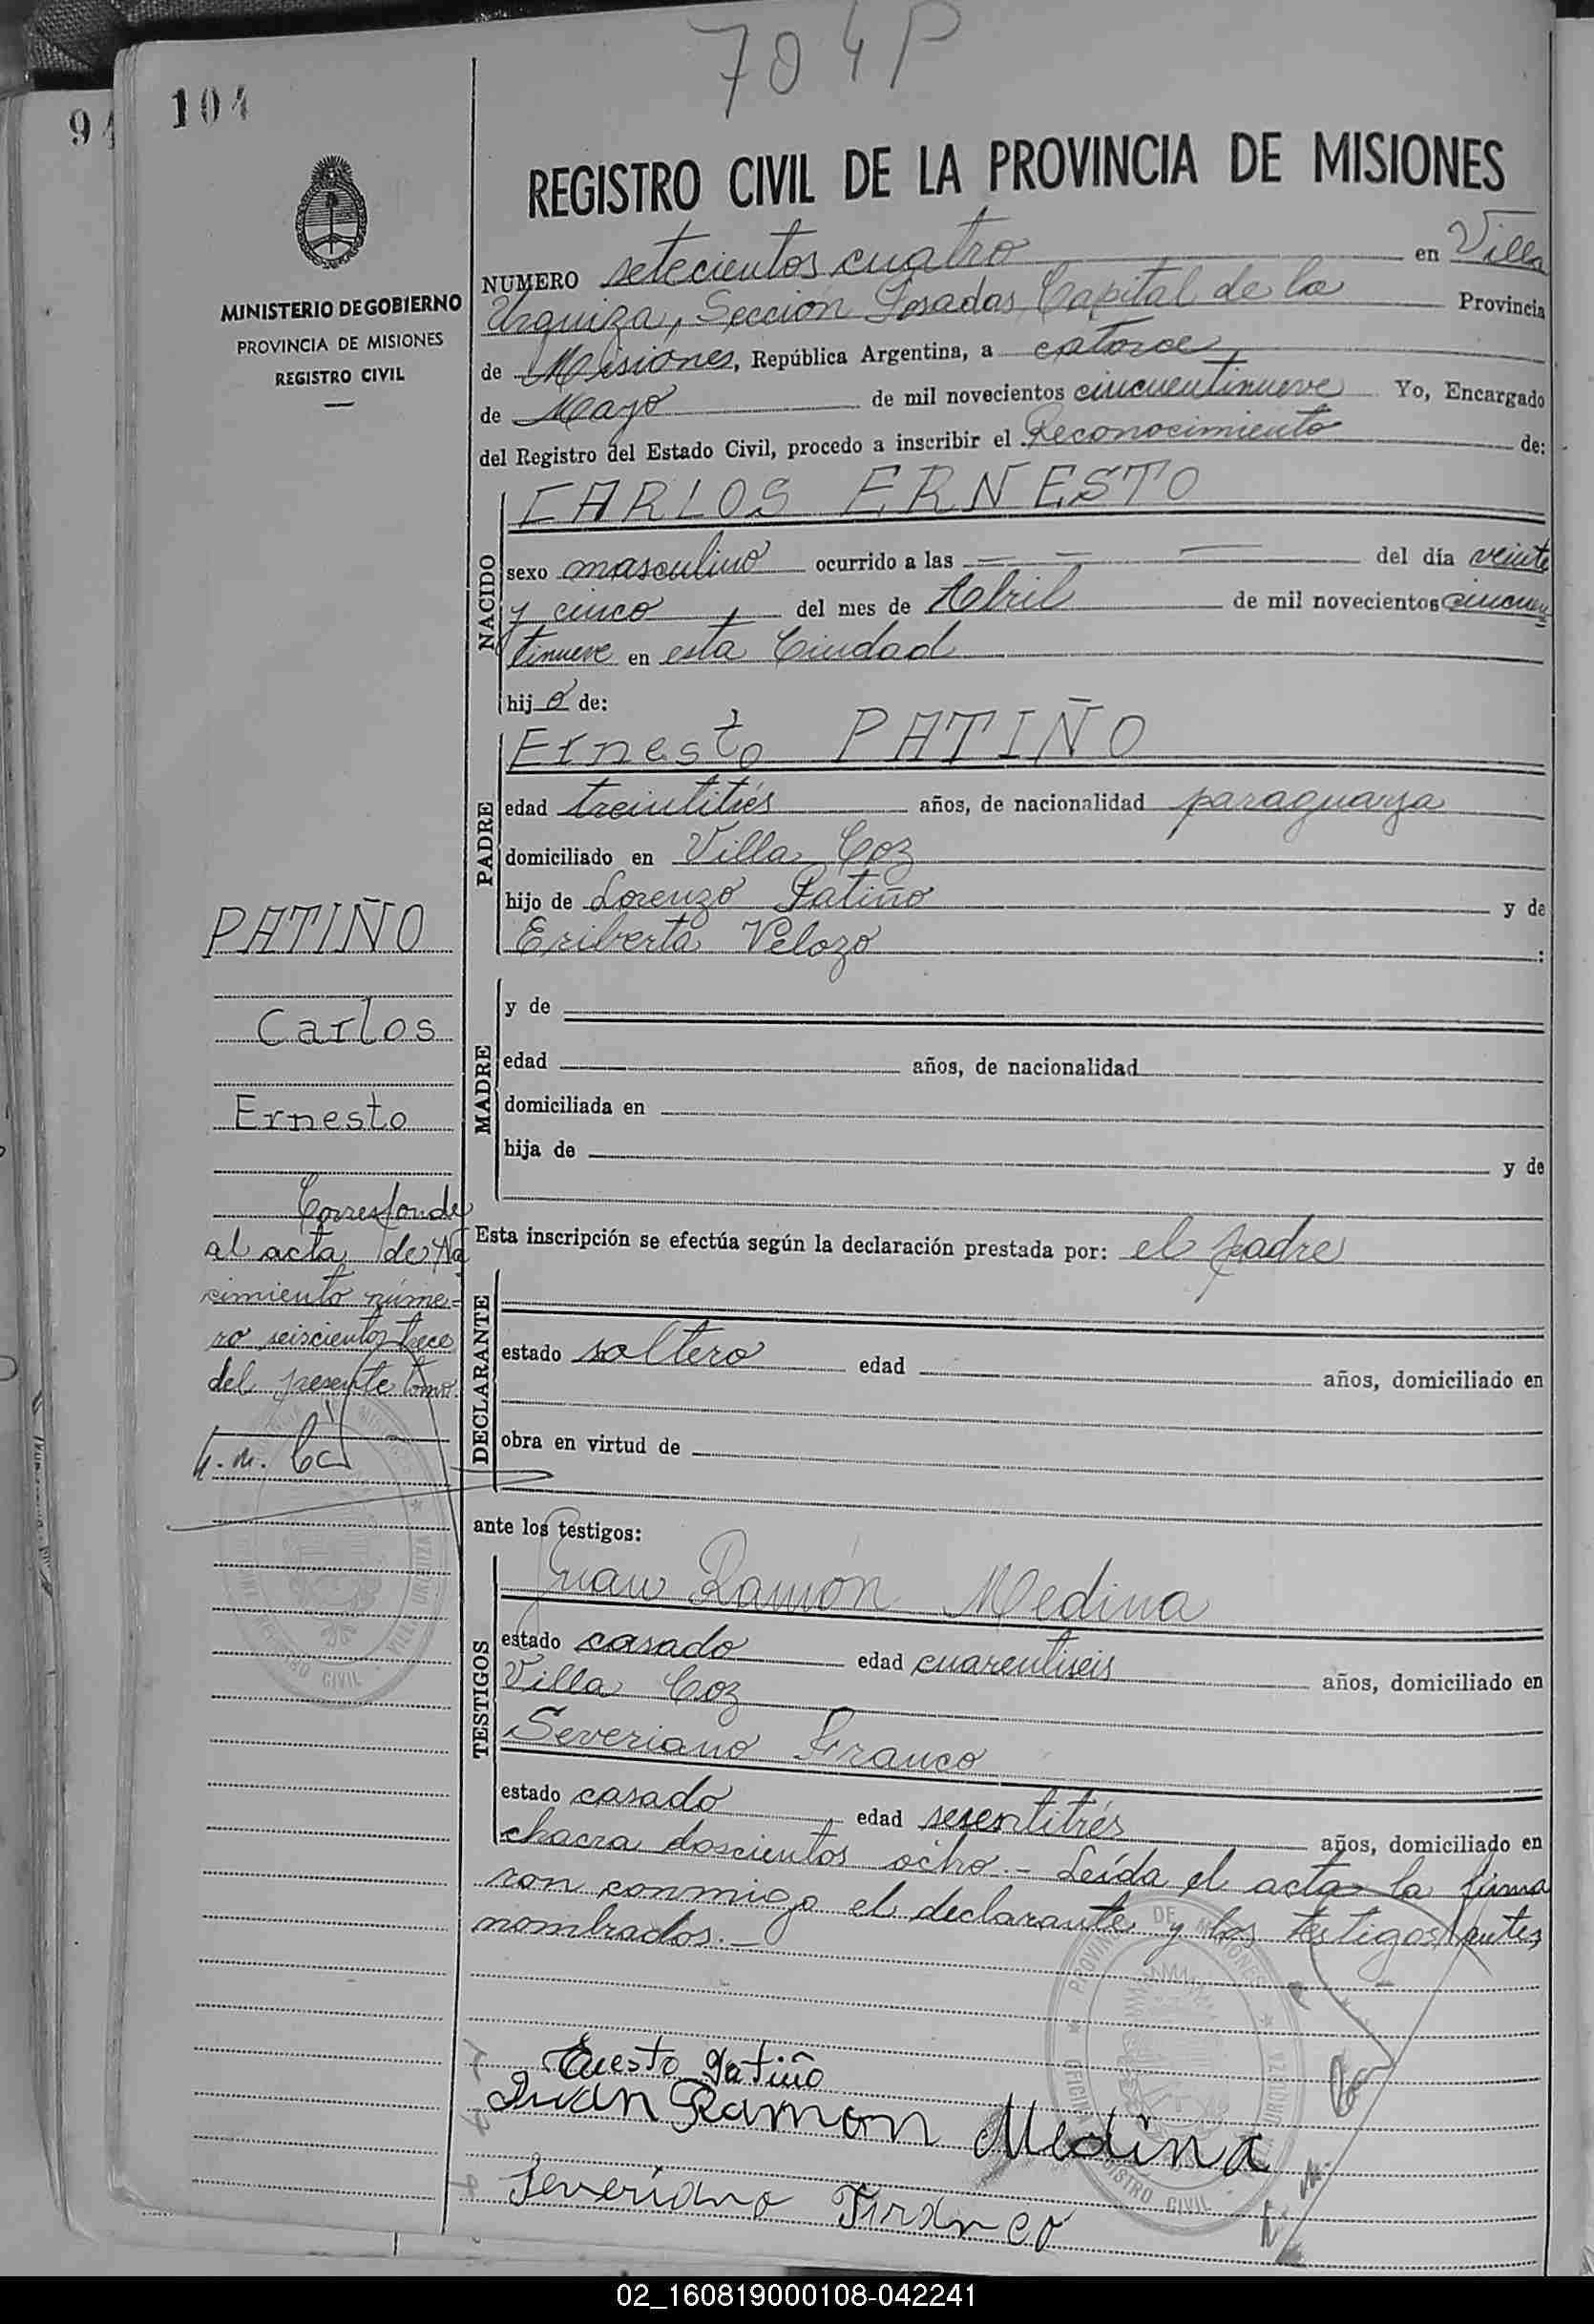 704P
94
104
REGISTRO CIVIL DE LA PROVINCIA DE MISIONES
MINISTERIO DE GOBIERNO
PROVINCIA DE MISIONES
REGISTRO CIVIL
NUMERO setecientos cuatro en Villa
Urquiza, Sección Posadas Capital de la Provincia
de Misiones, República Argentina, a catorce
de Mayo de mil novecientos cincuentinueve Yo, Encargado
del Registro del Estado Civil, procedo a inscribir el Reconocimiento de:
NACIDO
CARLOS ERNESTO
sexo masculino ocurrido a las — — — del día veinte
y cinco del mes de Abril de mil novecientos cincuen
tinueve en esta Ciudad
hij o de:
PADRE
Ernesto PATIÑO
edad treintitrés años, de nacionalidad paraguaya
domiciliado en Villa Coz
hijo de Lorenzo Patiño y de
Eriberta Velozo :
MADRE
y de
edad años, de nacionalidad
domiciliada en
hija de y de
PATIÑO
Carlos
Ernesto
Corresponde
al acta de Na
cimiento núme-
ro seiscientos trece
del presente tomo.
Esta inscripción se efectúa según la declaración prestada por: el padre
DECLARANTE
estado soltero edad años, domiciliado en
obra en virtud de
ante los testigos:
TESTIGOS
Juan Ramón Medina
estado casado edad cuarentiseis años, domiciliado en
Villa Coz
Severiano Franco
estado casado edad sesentitrés años, domiciliado en
chacra doscientos ocho.- Leída el acta la firma
ron conmigo el declarante y los testigos antes
nombrados.-
Ernesto Patiño
Juan Ramon Medina
Severiano Franco
PROVINCIA DE MISIONES
REGISTRO CIVIL
02_160819000108-042241